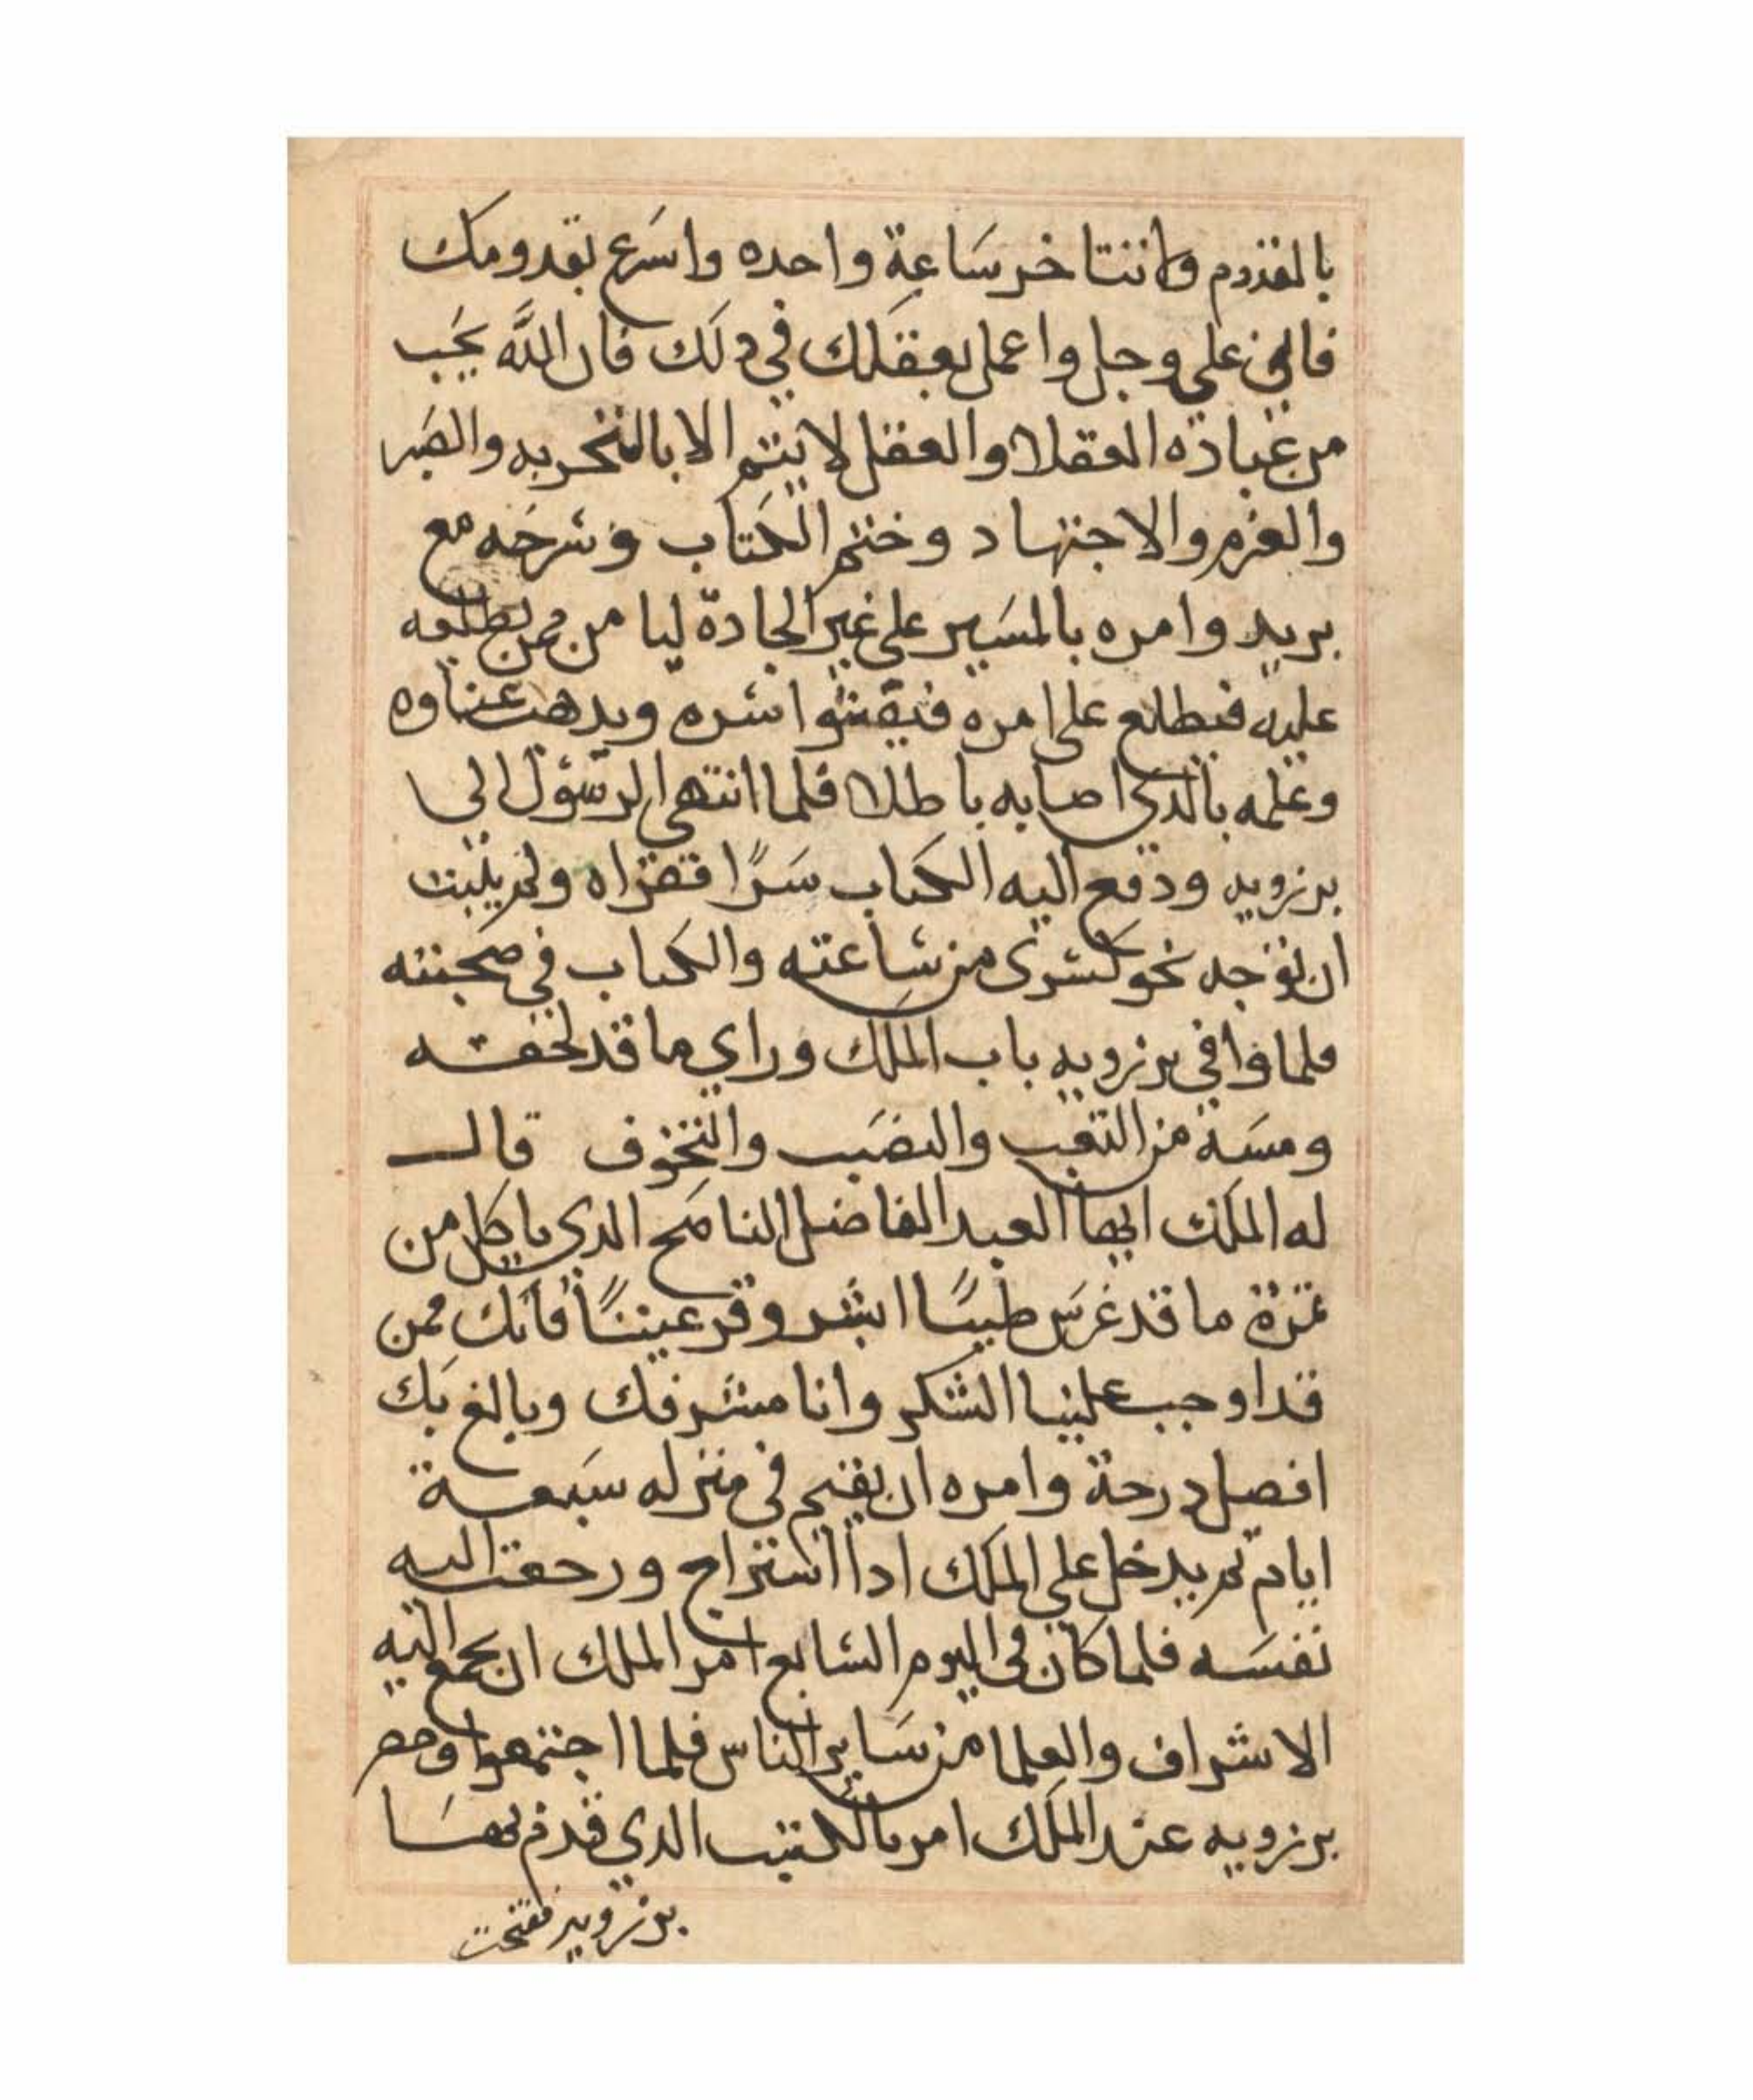 بالقدوم ولا تتاخر ساعة واحده واسرع بقدومك
فاني على وجل واعمل بعقلك في دلك فان الله يحب
من عباده العقلا والعقل لا يتم الا بالتجربه والصبر
والعزم والاجتهاد وختم الكتاب وسرحه مع
بريد وامره بالمسير على غير الجادة ليا من ممن يطلعه
عليه فيطلع على امره فيفشوا سره ويدهب عناوه
وعلمه بالدي اصابه باطلا فلما انتهى الرسول الى
برزويه ودفع اليه الكتاب سرا فقراه ولم يلبث
ان توجه نحو كسرى من ساعته والكتاب في صحبته
فلما وافي برزويه باب الملك وراي ما قد لحقه
ومسه من التعب والنصب والتخوف قال
له الملك ايها العبد الفاضل الناصح الدي ياكل من
ثمرة ما قد غرس طيبا ابشر وقر عينا فانك ممن
قد اوجب علينا الشكر وانا مشرفك وبالغ بك
افضل درجة وامره ان يقيم في منزله سبعة
ايام ثم يدخل على الملك ادا استراح ورجعت اليه
نفسه فلما كان في اليوم السابع امر الملك ان يجمع اليه
الاشراف والعلما من ساير الناس فلما اجتمعوا وحضر
برزويه عند الملك امر بالكتب الدي قدم بها
برزويه ففتحت